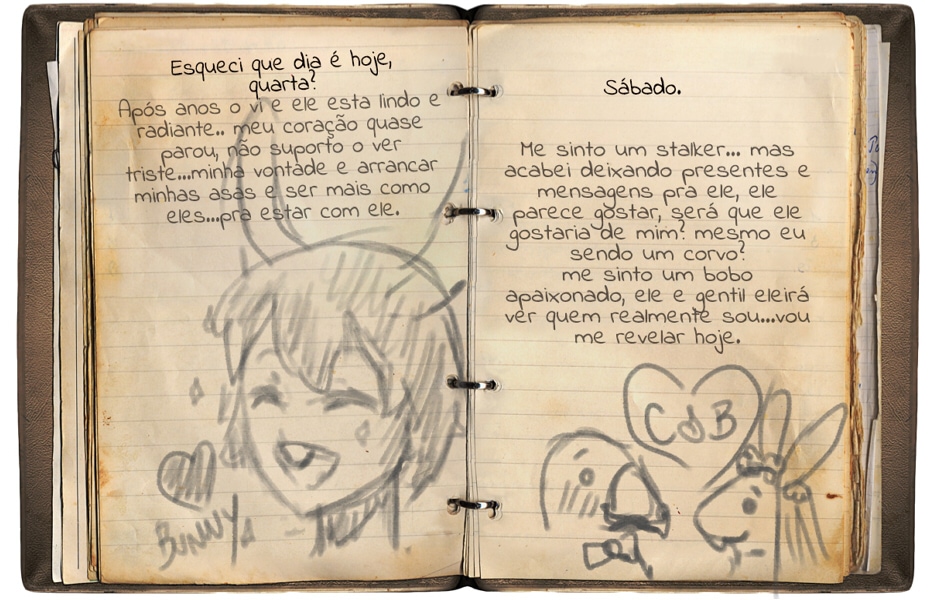 Esqueci que dia é hoje,
quarta?
Após anos o vi e ele esta lindo e
radiante.. meu coração quase
parou, não suporto o ver
triste...minha vontade e arrancar
minhas asas e ser mais como
eles...pra estar com ele.
BUNNY
Sábado.
Me sinto um stalker... mas
acabei deixando presentes e
mensagens pra ele, ele
parece gostar, será que ele
gostaria de mim? mesmo eu
sendo um corvo?
me sinto um bobo
apaixonado, ele e gentil eleirá
ver quem realmente sou...vou
me revelar hoje.
C B